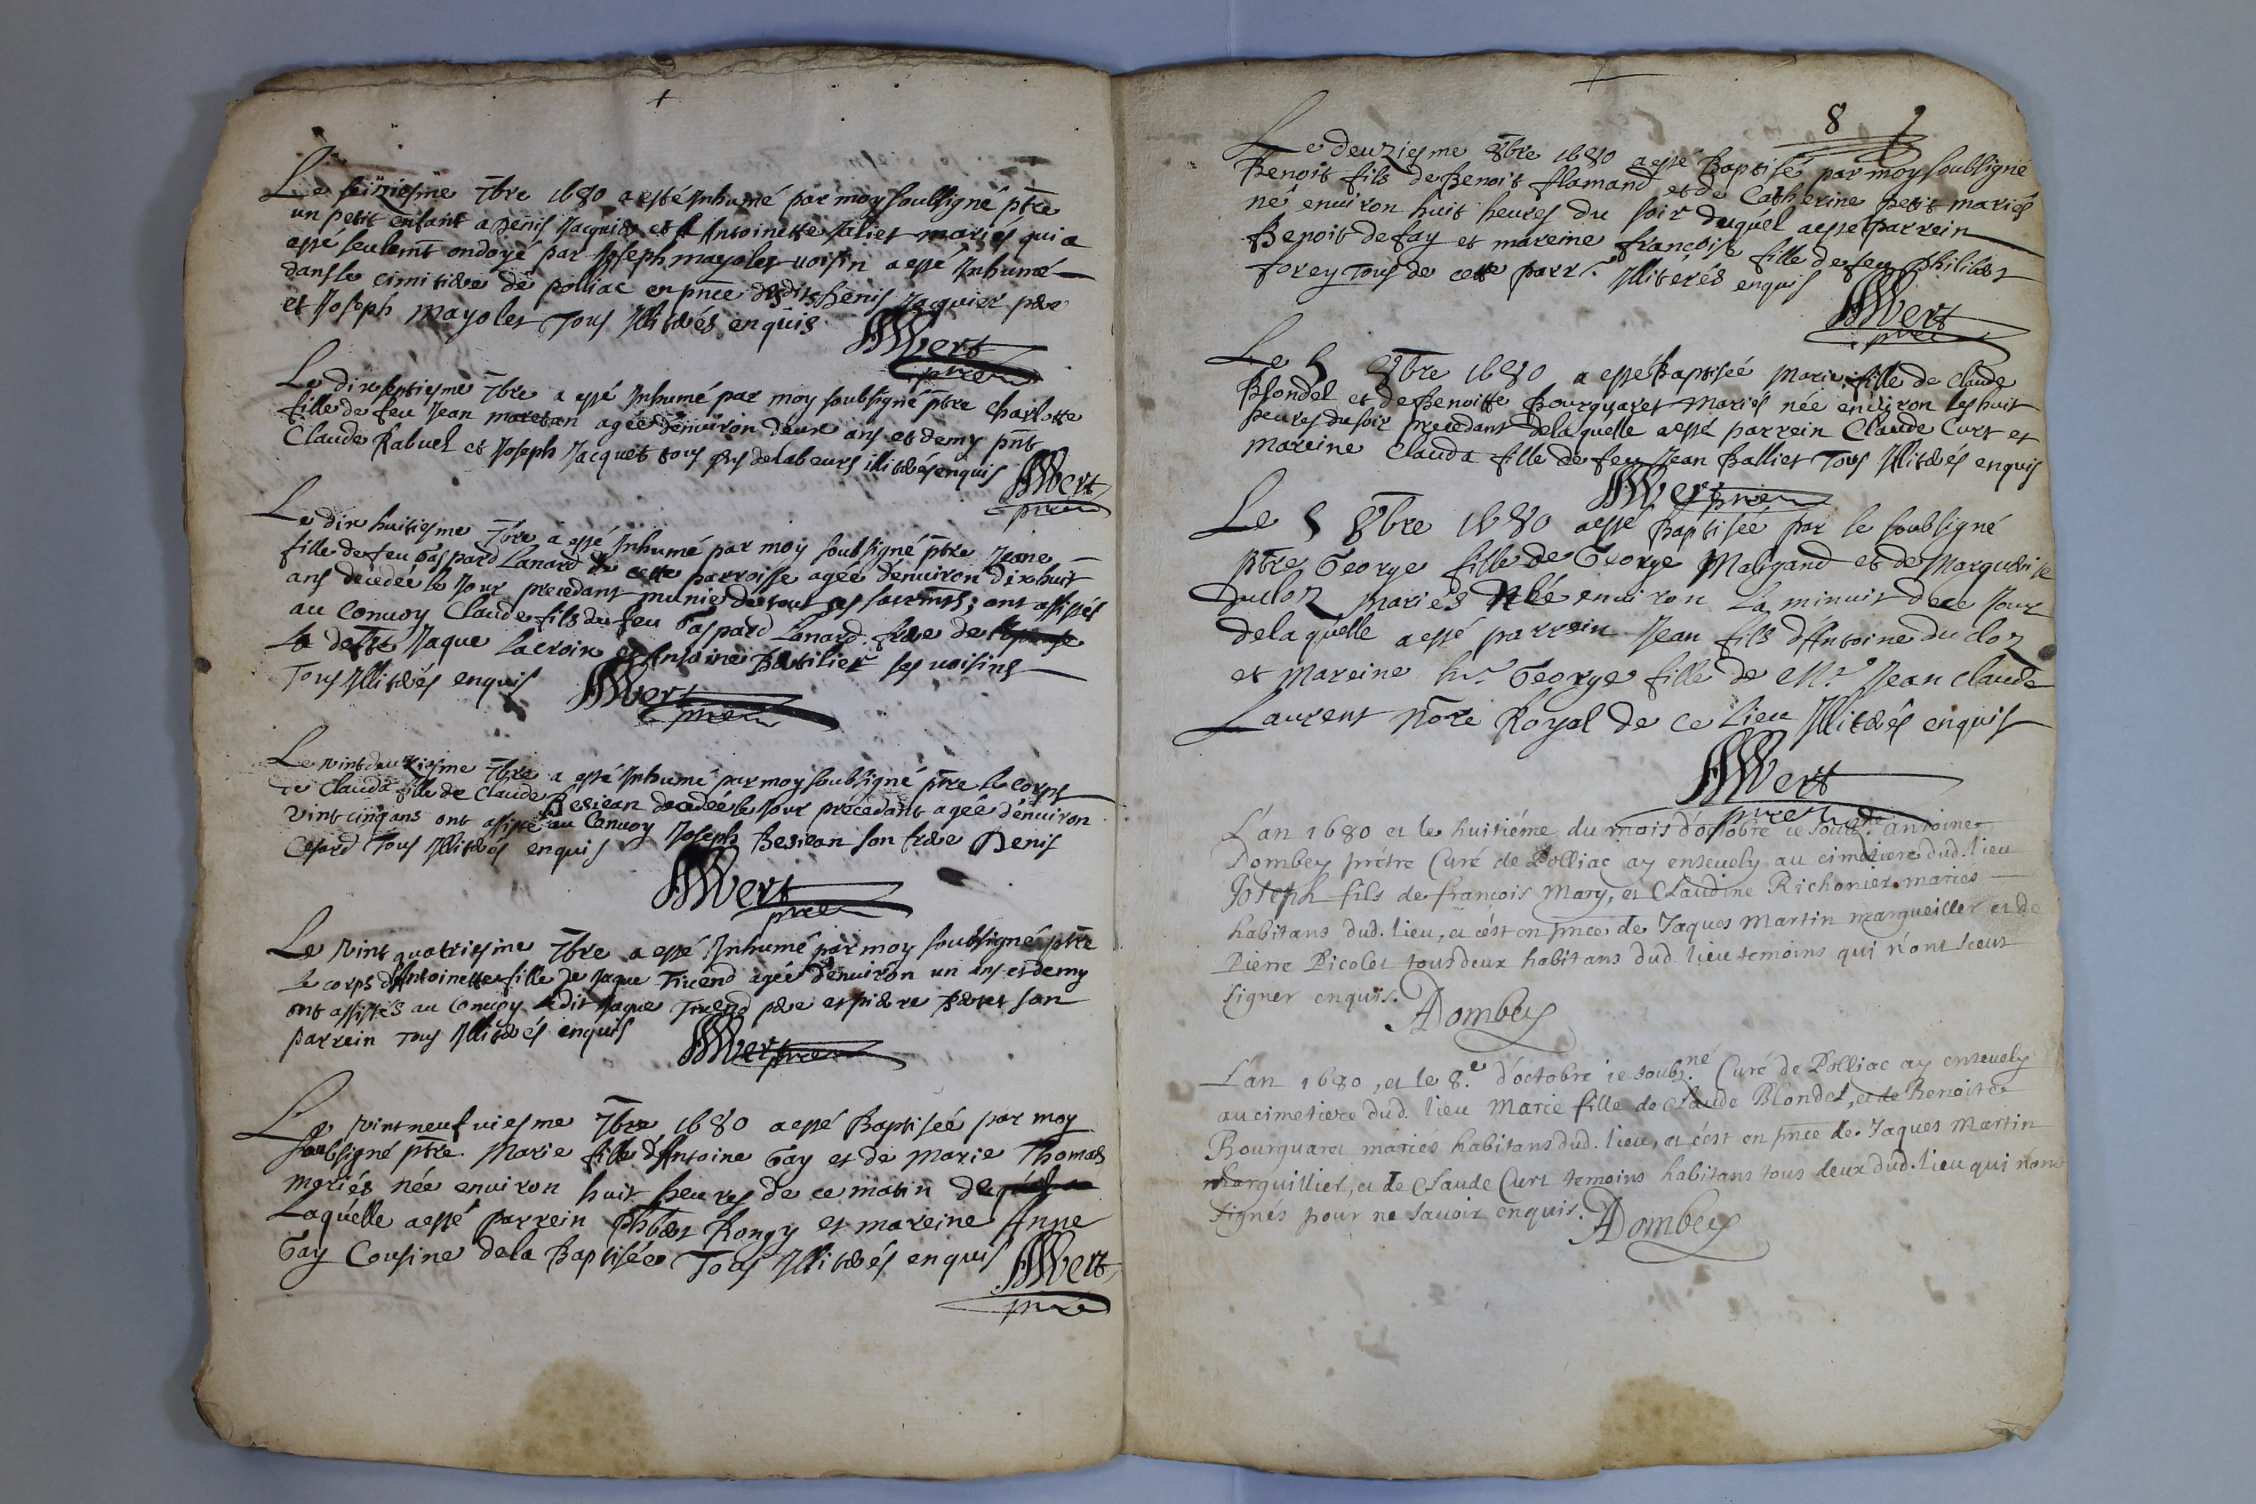 Le seiziesme 7bre 1680 a esté Inhumé par moy soubsigné ptre
un petit enfant a Denis Jacquier et d'Antoinette Taliet mariés qui a
esté seulemt ondoyé par Joseph mayolet voisin a esté Inhumé
dans le cimitiere de polliac en pnce desdits Denis Jacquier pere
et Joseph mayolet Tous Illiterés enquis
AWert
ptre
Le dixseptiesme 7bre a esté Inhumé par moy soubsigné ptre Charlotte
fille de feu Jean maretan agée d'environ deux ans et demy pnt
Claude Rabuel et Joseph Jacquet tous de labeurs illiterés enquis
AWert
ptre
Le dix huitiesme 7bre a esté Inhumé par moy soubsigné ptre Jeane
fille de feu Gaspard Lanard de cette parroisse agée denviron dixhuit
ans décedée le Jour precedant munie de tout ses sacremts; ont assistés
au Convoy Claude fils de feu Gaspard Lanard frere de
la defte Jaque Lacroix et Antoine Batilier ses voisins
Tous Illiterés enquis
AWert
ptre
Le vintdeuziesme 7bre a esté Inhumé par moy soubsigné ptre le corps
de Clauda fille de Claude Besiean decedée le Jour précedant agée d'environ
vint cinq ans ont assisté au Convoy Joseph Besiean son frere Denis
Cesard Tous Illiterés enquis
AWert
ptre
Le vint quatriesme 7bre a esté Inhumé par moy soubsigné ptre
le corps d'Antoinette fille de Jaque Tivend agée d'environ un ans et demy
ont assistés au Convoy ledit Jaque Tivend pere et pierre Peret son
parrein Tous Illiterés enquis
AWert
ptre
Le vintneufviesme 7bre 1680 a esté Baptisée par moy
soubsigné ptre Marie fille d'Antoine Gay et de Marie Thomas
mariés née environ huit heures de ce matin de
Laquelle a esté parrein Phibert Rongy et mareine Anne
Gay Cousine de la Baptisée Tous Illiterés enquis
AWert
ptre
8
Le deuziesme 8bre 1680 a esté Baptisé par moy soubsigné
Benoit fils de Benoit flamand et de Catherine petit mariés
né environ huit heures du soir duquel a esté parrein
Benoit defay et mareine françoise fille de feu philibert
forey Tous de cette parr. Illiterés enquis
AWert
ptre
Le 5 8bre 1680 a esté Baptisée Marie fille de Claude
Blondel et de Benoitte Bourguaret Mariés née environ les huit
heures du soir precedant de laquelle a esté parrein Claude Curt et
Mareine Clauda fille de feu Jean Balliet Tous Illiterés enquis
AWert
ptre
Le 5 8bre 1680 a esté Baptisée par le soubsigné
ptre George fille de George Maligand et de Marguerite
Ducloz Mariés née environ La minuit de ce Jour
de laquelle a esté parrein Jean fils d'Antoine Ducloz
et Mareine George fille de Mr. Jean Claude
Laurent nore Royal de ce Lieu Illiterés enquis
AWert
ptre
L'an 1680 et le huitiéme du mois d'octobre ie soubs.né Antoine
Dombey prêtre Curé de Polliac ay ensevely au cimetiere dud. lieu
Joseph fils de françois Mary, et Claudine Richonier mariés
habitans dud. lieu, et c'est en pnce de Jaques Martin margueiller et de
Pierre Picolet tous deux habitans dud. lieu temoins qui n'ont sceut
signer enquis.
ADombey
L'an 1680, et le 8.e d'octobre ie soubs.né Curé de Polliac ay ensevely
au cimetiere dud. lieu Marie fille de Claude Blondel, et de Benoite
Bourguaret mariés habitans dud. lieu, et c'est en pnce de Jaques Martin
marguillier, et de Claude Curt temoins habitans tous deux dud. lieu qui n'ont
signés pour ne savoir enquis.
ADombey